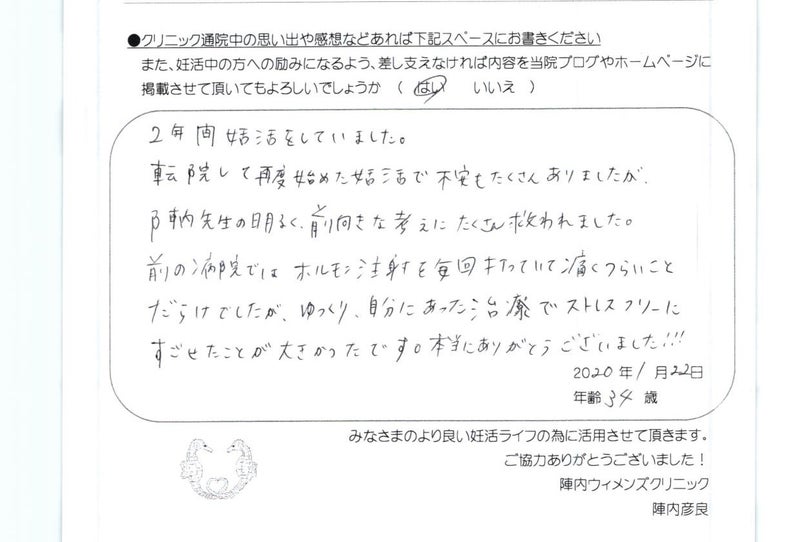 ●クリニック通院中の思い出や感想などあれば下記スペースにお書きください
また、妊活中の方への励みになるよう、差し支えなければ内容を当院ブログやホームページに
掲載させて頂いてもよろしいでしょうか （ はい　いいえ ）
2年間妊活をしていました。
転院して再度始めた妊活で不安もたくさんありましたが、
陣内先生の明るく、前向きな考えにたくさん救われました。
前の病院ではホルモン注射を毎回打っていて痛くつらいこと
だらけでしたが、ゆっくり、自分にあった治療でストレスフリーに
すごせたことが大きかったです。本当にありがとうございました!!!
2020年1月22日
年齢34歳
みなさまのより良い妊活ライフの為に活用させて頂きます。
ご協力ありがとうございました！
陣内ウィメンズクリニック
陣内彦良